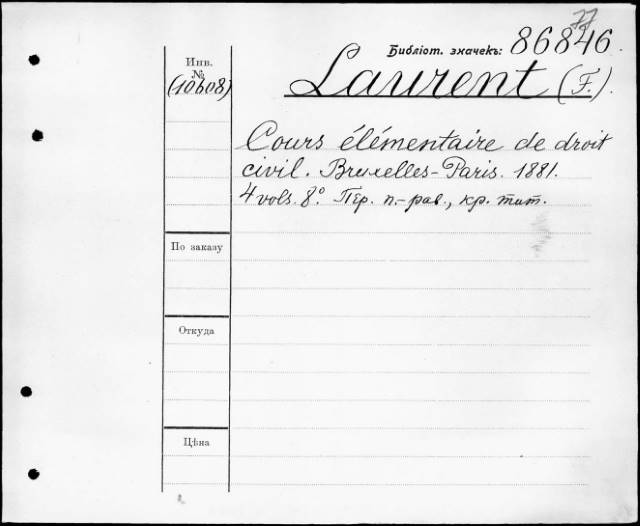 77
Библіот. значекъ: 86846.
Инв.
№
(10608)
Laurent (F.).
Cours élémentaire de droit
civil. Bruxelles-Paris. 1881.
4 vols. 8° Пер. п.-рав., кр. тит.
По заказу
Откуда
Цѣна